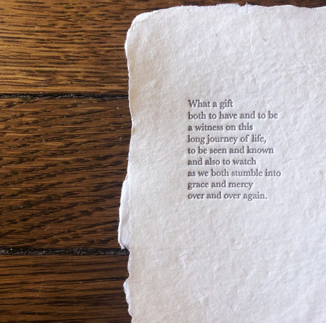 What a gift
both to have and to be
a witness on this
long journey of life,
to be seen and known
and also to watch
as we both stumble into
grace and mercy
over and over again.